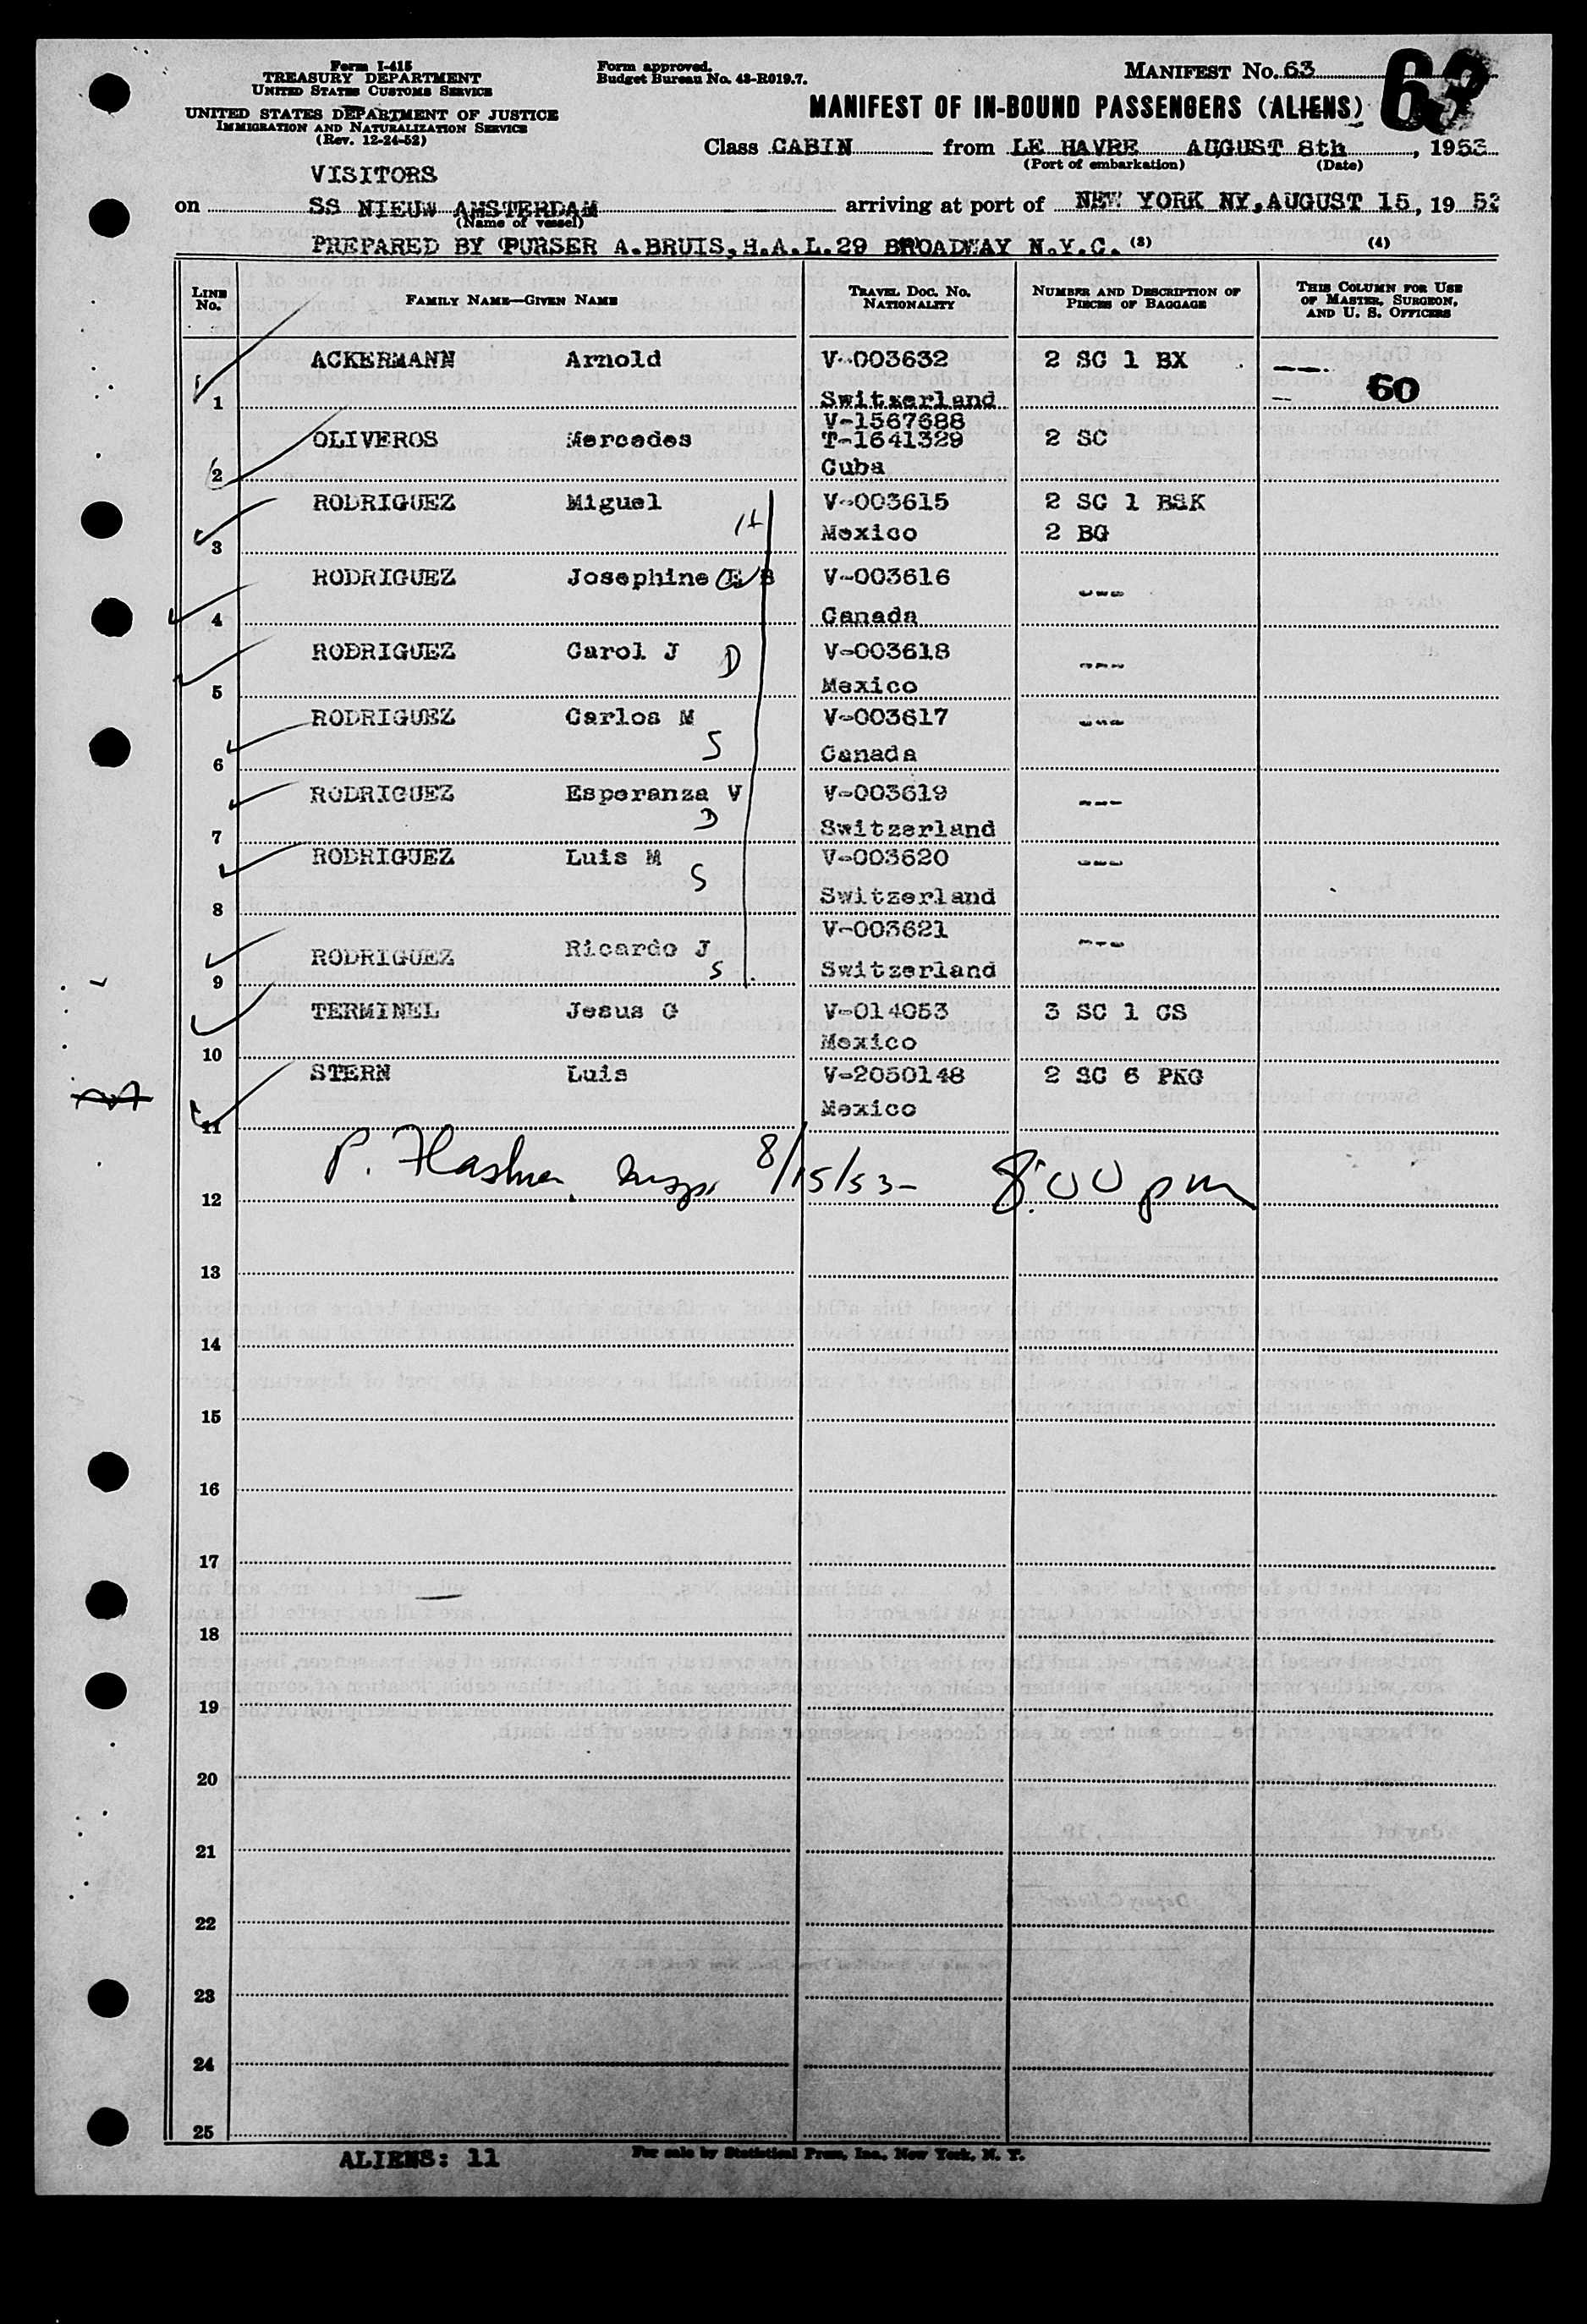 Form I-415
TREASURY DEPARTMENT
UNITED STATES CUSTOMS SERVICE
UNITED STATES DEPARTMENT OF JUSTICE
IMMIGRATION AND NATURALIZATION SERVICE
(Rev. 12-24-52)
Form approved.
Budget Bureau No. 43-R019.7.
MANIFEST No. 63
63
MANIFEST OF IN-BOUND PASSENGERS (ALIENS)
Class CABIN from LE HAVRE AUGUST 8th, 1953
(Port of embarkation) (Date)
VISITORS
on SS NIEUW AMSTERDAM arriving at port of NEW YORK NY, AUGUST 15, 19 53
(Name of vessel)
PREPARED BY PURSER A.BRUIS, H.A.L. 29 BROADWAY N.Y.C. (3) (4)
LINE No. FAMILY NAME—GIVEN NAME TRAVEL DOC. No. NATIONALITY NUMBER AND DESCRIPTION OF PIECES OF BAGGAGE THIS COLUMN FOR USE OF MASTER, SURGEON, AND U. S. OFFICERS
ACKERMANN Arnold V-003632 2 SC 1 BX ---- 60
1 Switzerland
V-1567688
OLIVEROS Mercedes T-1641329 2 SC
2 Cuba
RODRIGUEZ Miguel V-003615 2 SC 1 BSK
3 H Mexico 2 BG
RODRIGUEZ Josephine E B V-003616 ---
4 Canada
RODRIGUEZ Carol J D V-003618 ---
5 Mexico
RODRIGUEZ Carlos M V-003617 ---
6 S Canada
RODRIGUEZ Esperanza V V-003619 ---
7 D Switzerland
RODRIGUEZ Luis M V-003620 ---
8 S Switzerland
RODRIGUEZ Ricardo J V-003621 ---
9 S Switzerland
TERMINEL Jesus G V-014053 3 SC 1 CS
10 Mexico
STERN Luis V-2050148 2 SC 6 PKG
11 Mexico
12 P. 8/15/53 8:00 pm
13
14
15
16
17
18
19
20
21
22
23
24
25
ALIENS: 11
For sale by Statistical Press, Inc., New York, N. Y.